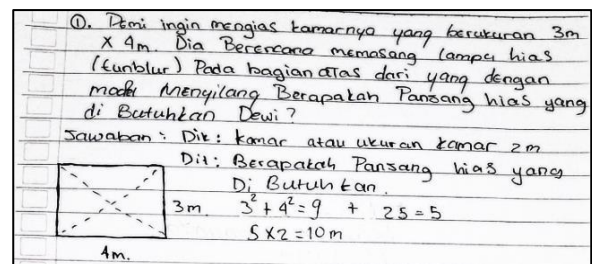 ①. Demi ingin mengias kamarnya yang berukuran 3m
X 4m. Dia Berencana memasang lampu hias
(tunblur) Pada bagian atas dari yang dengan
model Menyilang Berapakah Pansang hias yang
di Butuhkan Dewi?
Jawaban : Dik : kamar atau ukuran kamar 2m
Dit : Berapakah Pansang hias yang
Di Butuhkan.
3m. 3² + 4² = 9 + 25 = 5
5 X 2 = 10 m
4m.